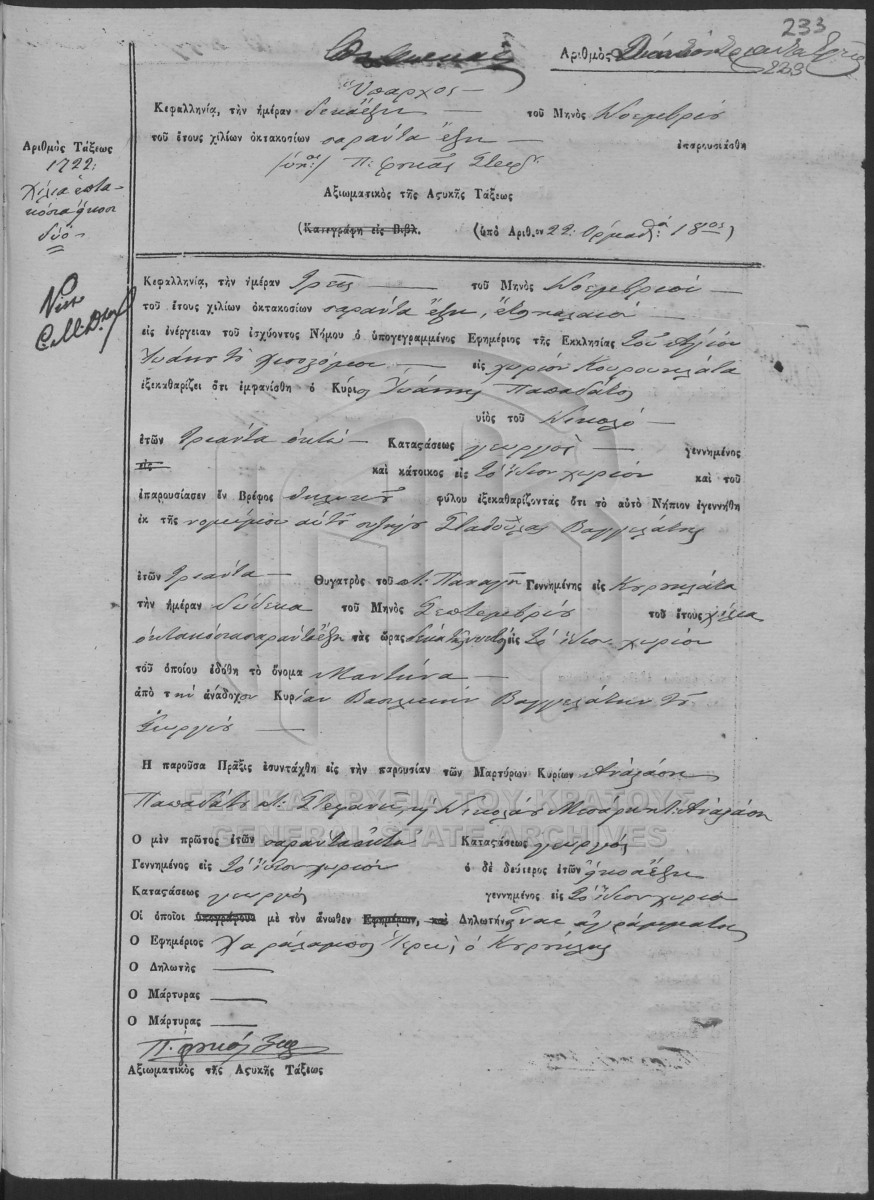 233
Αριθμὸς Διακόσια τριάντα τρία
233
Ὕπαρχος
Κεφαλληνία, τὴν ἡμέραν δεκαέξη τοῦ Μηνὸς Νοεμβρίȣ
τοῦ ἔτους χιλίων ὀκτακοσίων σαράντα ἕξη ἐπαρουσιάσθη
Π: Φωκᾶς
Αξιωματικὸς τῆς Αςυκῆς Τάξεως
(Κατεγράφη εἰς Βιβλ. (ὑπὸ Αριθ.ον 22: Ὁρμαθ: 18ος)
Αριθμὸς Τάξεως
1722:
Χίλια ἑπτα-
κόσια ἤκοσι
δύο
Κεφαλληνία, τὴν ἡμέραν Τρεῖς τοῦ Μηνὸς Νοεμβρίου
τοῦ ἔτους χιλίων ὀκτακοσίων σαράντα ἕξη, ἔτ: παλαιὸ
εἰς ἐνέργειαν τοῦ ἰσχύοντος Νήμου ὁ ὑπογεγραμμένος Εφημέριος τῆς Εκκλησίας Τοῦ Ἁγίου
Ἰωάνȣ τȣ̃ εἰς χωρίον Κουρουκλάτα
ἐξεκαθαρίζει ὅτι ἐμφανίσθη ὁ Κύριος Ἰωάνης Παπαδάτος
υἱὸς τοῦ Νικολὸ
ἐτῶν τριάντα ὀκτὼ Καταςάσεως γεωργὸς γεννημένος
εἰς καὶ κάτοικος εἰς Τὸ ἴδιον χωρίον καὶ τοῦ
ἐπαρουσίασεν ἓν Βρέφος θηλυκȣ̃ φύλου ἐξεκαθαρίζοντας ὅτι τὸ αὐτὸ Νήπιον ἐγεννήθη
ἐκ τῆς νομίμου αὐτȣ̃ συζήγȣ Σταθούλας Βαγγελάτης
ἐτῶν τριάντα Θυγατρὸς τοῦ π: Παναγῆ Γεννημένης εἰς Κȣρȣκλάτα
τὴν ἡμέραν δώδεκα τοῦ Μηνὸς Σεπτεμβρίȣ τοῦ ἔτους χίλια
ὀκτακόσια σαράντα ἕξη τὰς ὥρας εἰς Τὸ ἴδιον χωρίον
τοῦ ὁποίου ἐδόθη τὸ ὄνομα Μαντίνα
ἀπὸ τὴν ἀνάδοχον Κυρίαν Βασιλικὴν Βαγγελάτην τȣ̃
Γεωργίȣ
Η παροῦσα Πρᾶξις ἐσυντάχθη εἰς τὴν παρουσίαν τῶν Μαρτύρων Κυρίων Ἀναλάση
Παπαδάτȣ π: Στεφανῆ, κ̀ Νικολάȣ π: Ἀναλάση
Ο μὲν πρῶτος ἐτῶν σαράντα ὀκτὼ Καταςάσεως γεωργὸς
Γεννημένος εἰς Τὸ ἴδιον χωρίον ὁ δὲ δεύτερος ἐτῶν ἤκοσι ἕξη
Καταςάσεως γεωργὸς γεννημένος εἰς Τὸ ἴδιον χωρίον
Οἱ ὁποῖοι ὑπογράφου μὲ τὸν ἄνωθεν Εφημέριον, καὶ Δηλωτὴν εἶναι ἀγράμματοι
Ο Εφημέριος Χαράλαμπος Ἱερεὺς ὁ
Ο Δηλωτὴς
Ο Μάρτυρας
Ο Μάρτυρας
Π. Φωκᾶς
Αξιωματικὸς τῆς Αςυκῆς Τάξεως
ΓΕΝΙΚΑ ΑΡΧΕΙΑ ΤΟΥ ΚΡΑΤΟΥΣ
GENERAL STATE ARCHIVES